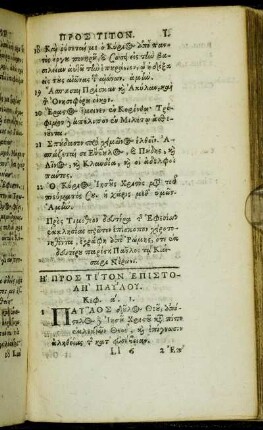 ΠΡΟΣ ΤΙΤΟΝ. I.
18 Καὶ ῥύσεταί με ὁ Κύριος ἀπὸ παν-
τὸς ἔργου πονηροῦ, & σώσει εἰς τὴν βασ-
λείαν αὐτοῦ τὴν ἐπουράνιον, ᾧ ἡ δόξα
εἰς τοὺς αἰῶνας τῶν αἰώνων. ἀμήν.
19 Ἄσπασαι Πρίσκαν καὶ Ἀκύλαν, καὶ τὸν
Ὀνησιφόρου οἶκον.
20 Ἔραστος ἔμεινεν ἐν Κορίνθῳ· Τρό-
φιμον ἀπέλιπον ἐν Μιλήτῳ ἀσθε-
νοῦντα.
21 Σπούδασον πρὸ χειμῶνος ἐλθεῖν. Ἀσ-
πάζεταί σε Εὔβουλος, & Πούδης, καὶ
Λῖνος, καὶ Κλαυδία, καὶ οἱ ἀδελφοὶ
πάντες.
22 Ὁ Κύριος Ἰησοῦς Χριστὸς μετὰ τοῦ
πνεύματός σου. ἡ χάρις μεθ' ὑμῶν.
Ἀμήν.
Πρὸς Τιμόθεον δευτέρα τῆς Ἐφεσίων
ἐκκλησίας πρῶτον ἐπίσκοπον χειροτο-
νηθέντα, ἐγράφη ἀπὸ Ῥώμης, ὅτε ἐκ
δευτέρου παρέστη Παῦλος τῷ Καί-
σαρι Νέρωνι.
Ἡ ΠΡΟΣ ΤΙΤΟΝ ΕΠΙΣΤΟ-
ΛΗ ΠΑΥΛΟΥ.
Κεφ. α. 1.
1 ΠΑΥΛΟΣ δοῦλος Θεοῦ, ἀπό-
στολος δὲ Ἰησοῦ Χριστοῦ κατὰ πίστιν
ἐκλεκτῶν Θεοῦ, καὶ ἐπίγνωσιν
ἀληθείας τῆς κατ' εὐσέβειαν.
Ll 6 2 Ἐπ'